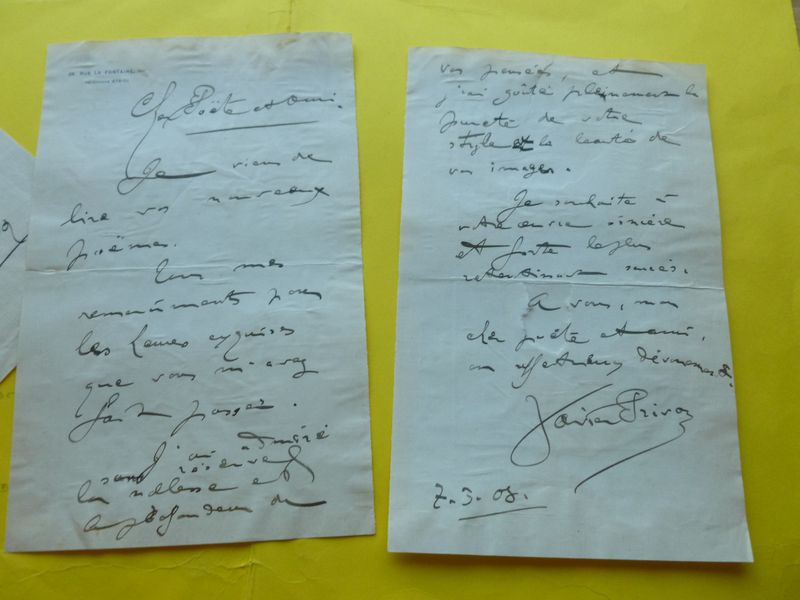 RUE LA FONTAINE
Cher Poète et ami.
Je viens de
lire vos nouveaux
poëmes.
Tous mes
remerciments pour
les heures exquises
que vous m'avez
fait passer.
J'ai admiré
sans réserve
la noblesse et
la profondeur de
vos pensées, et
j'ai goûté pleinement la
pureté de votre
style et la beauté de
vos images.
Je souhaite à
votre œuvre sincère
et forte le plus
retentissant succès.
A vous, mon
cher poète et ami,
en affectueux dévouement.
Xavier Privas
7.3.08.